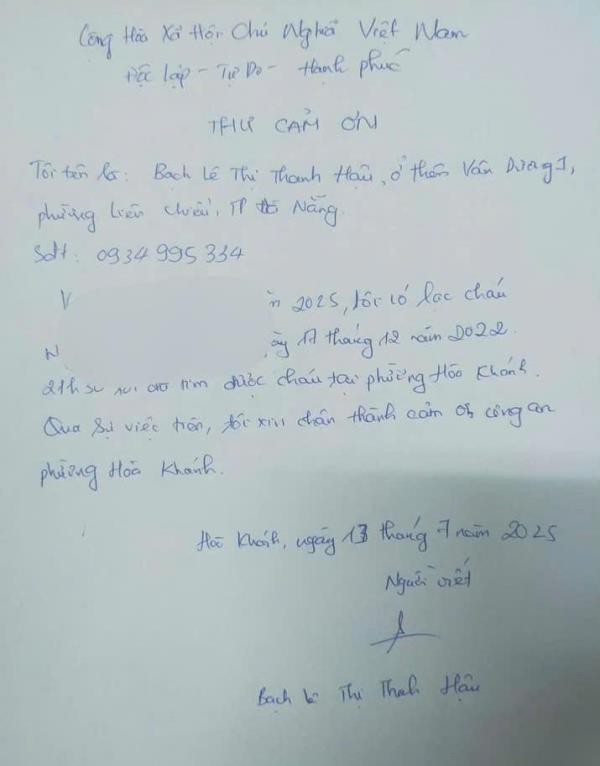 Cộng Hòa Xã Hội Chủ Nghĩa Việt Nam
Độc lập - Tự Do - Hạnh phúc
THƯ CẢM ƠN
Tôi tên là: Bạch Lê Thị Thanh Hậu, ở thôn Vân Dương 1,
phường Liên Chiểu, TP Đà Nẵng.
Sdt: 0934 995 334
V 2025, tôi có lạc cháu
N 17 tháng 12 năm 2022.
21h30 tìm được cháu tại phường Hòa Khánh.
Qua sự việc trên, tôi xin chân thành cảm ơn công an
phường Hòa Khánh.
Hòa Khánh, ngày 13 tháng 7 năm 2025
Người viết
Bạch Lê Thị Thanh Hậu